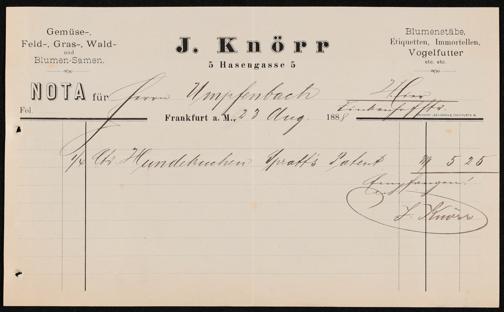 Gemüse-,
Feld-, Gras-, Wald-
und
Blumen-Samen.
J. Knörr
5 Hasengasse 5
Blumenstäbe,
Etiquetten, Immortellen,
Vogelfutter
etc. etc.
NOTA für Herrn Umpfenbach Hier
Fol.
Frankfurt a. M., 23 Aug. 1888
Hundekuchen Spratt's Patent M 5 25
Empfangen!
J. Knörr